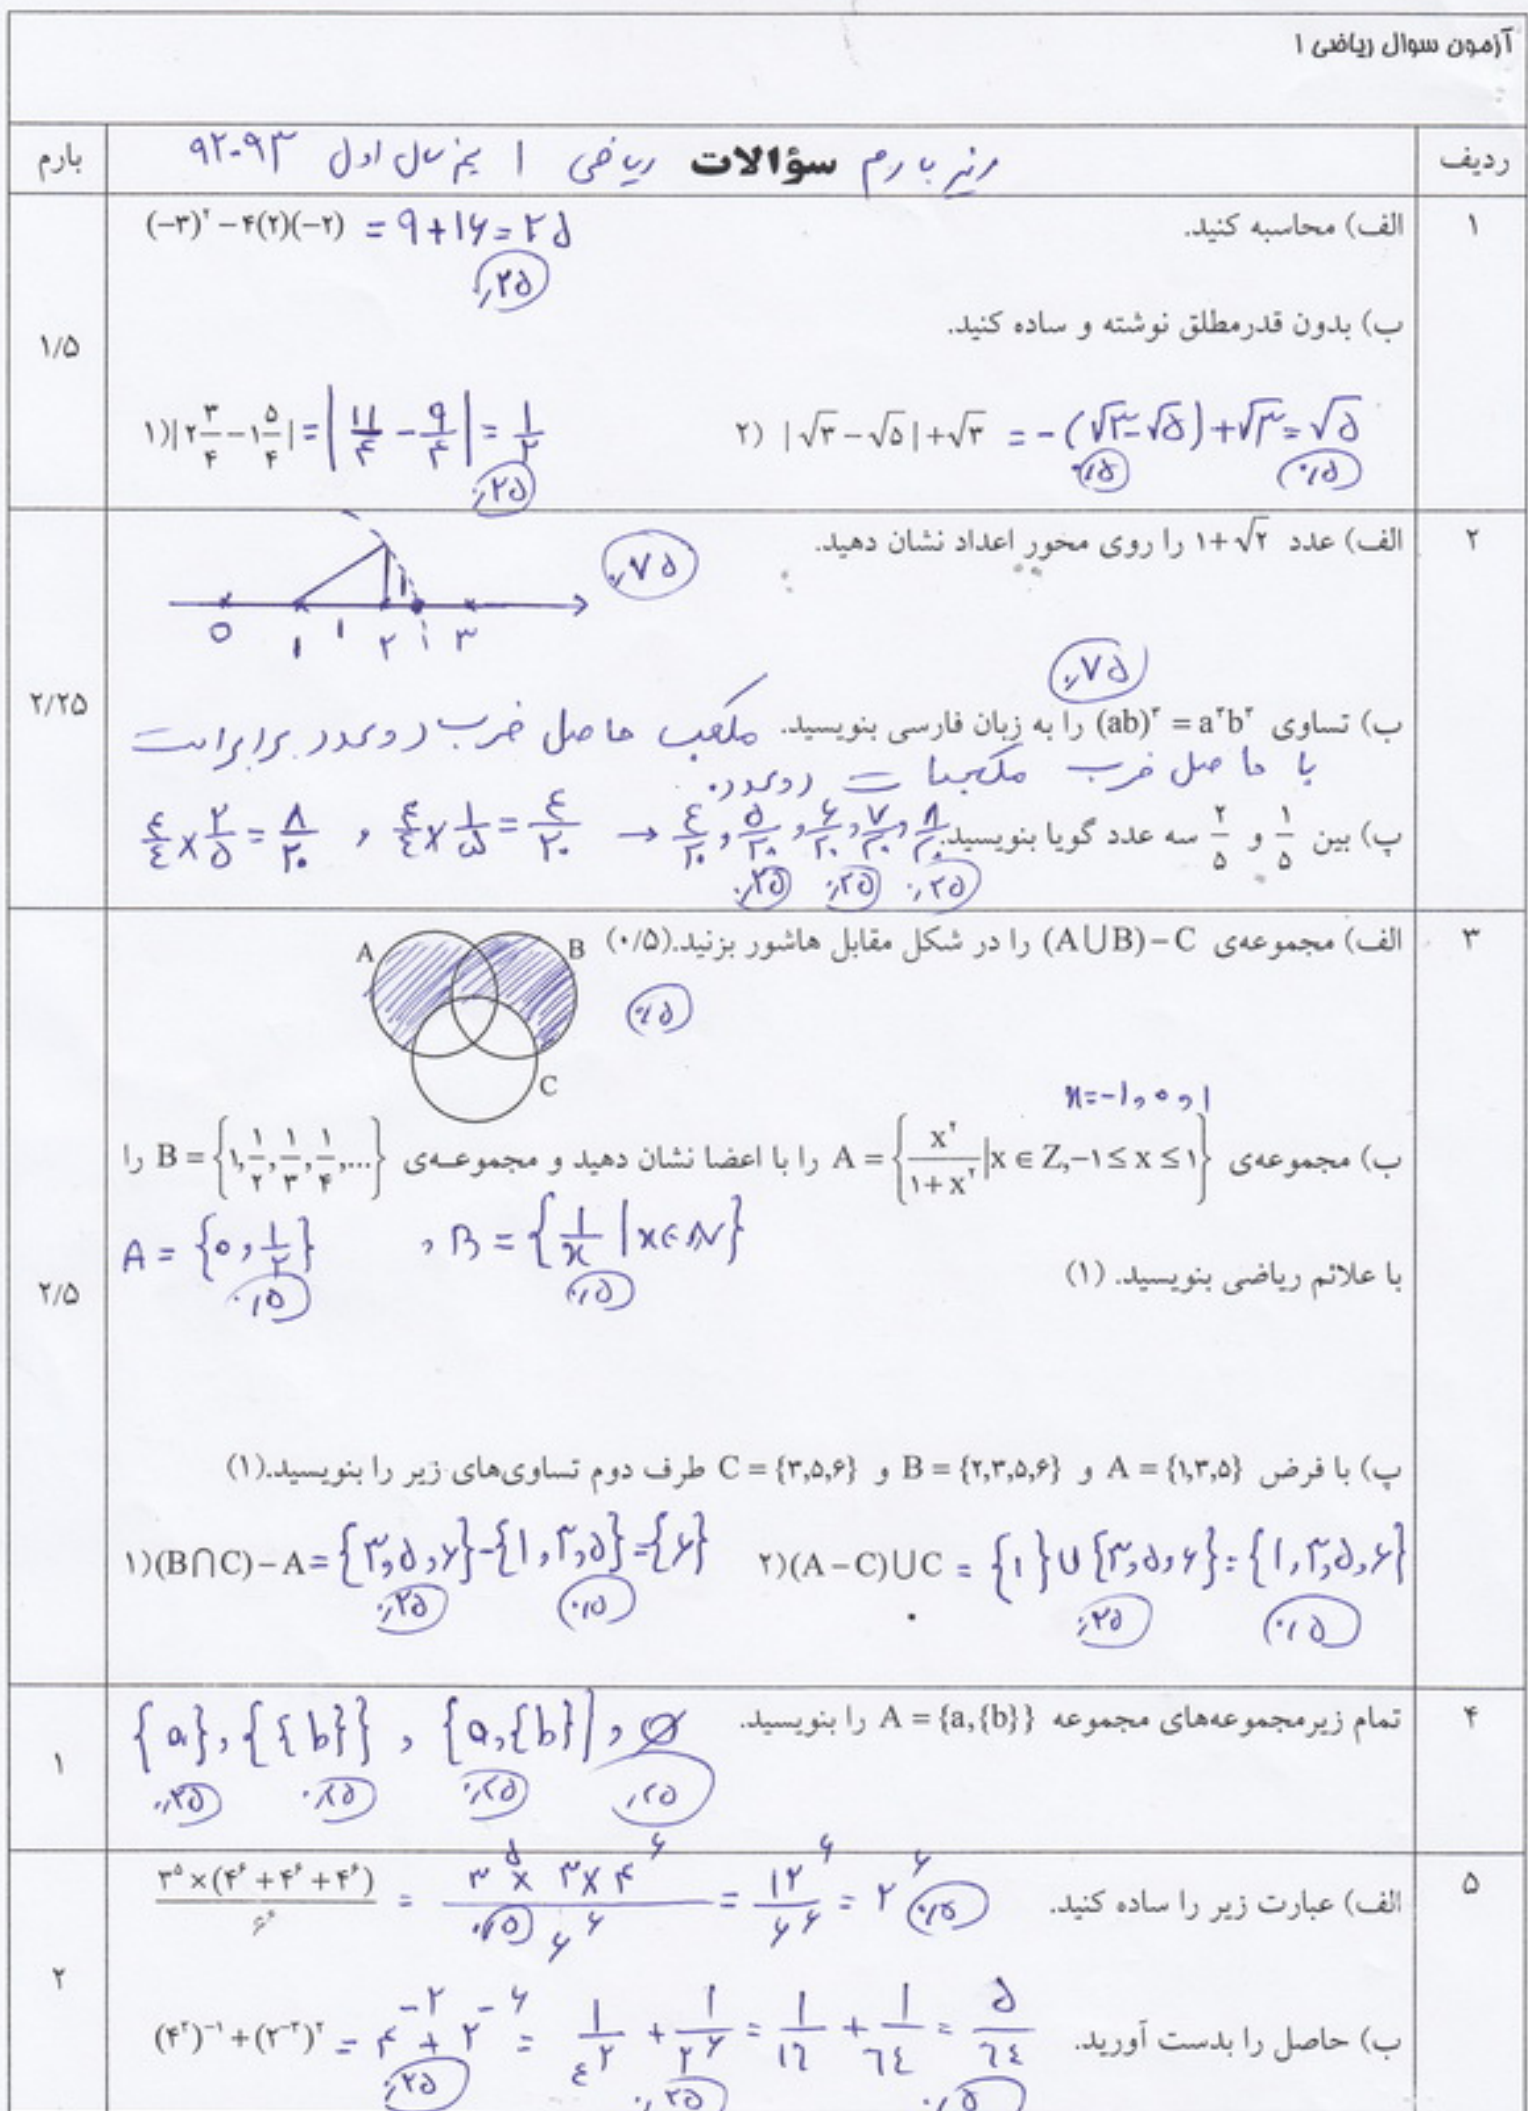 آزمون سوال ریاضی ۱
ردیف سؤالات ریاضی ۱ نیم سال اول ۹۲-۹۳ بارم
۱ الف) محاسبه کنید. (−۳)^۲ − ۴(۲)(−۲) = ۹+۱۶=۲۵
۰٫۲۵
ب) بدون قدرمطلق نوشته و ساده کنید.
۱/۵
۱) |۲ ۳/۴ − ۱ ۵/۴| = |۱۱/۴ − ۹/۴| = ۱/۲ ۲) |√۳ − √۵| + √۳ = −(√۳−√۵)+√۳=√۵
۰٫۲۵ ۰٫۵ ۰٫۵
۲ الف) عدد ۱+√۲ را روی محور اعداد نشان دهید. ۰٫۷۵
۱
0 ۱ ۱ ۲ ۳
۰٫۷۵
۲/۲۵
ب) تساوی (ab)^۳ = a^۳b^۳ را به زبان فارسی بنویسید. مکعب حاصل ضرب دو عدد برابر است
با حاصل ضرب مکعبات دو عدد.
پ) بین ۱/۵ و ۲/۵ سه عدد گویا بنویسید. ٤/٤ × ۲/۵ = ۸/۲۰ , ٤/٤ × ۱/۵ = ٤/۲۰ → ٤/۲۰ , ۵/۲۰ , ۶/۲۰ , ۷/۲۰ , ۸/۲۰
۰٫۲۵ ۰٫۲۵ ۰٫۲۵
۳ الف) مجموعه‌ی (A∪B)−C را در شکل مقابل هاشور بزنید.(۰/۵)
A B
۰٫۵
C
x=−۱,۰,۱
ب) مجموعه‌ی A = {x^۲/(۱+x^۲) | x ∈ Z, −۱ ≤ x ≤ ۱} را با اعضا نشان دهید و مجموعه‌ی B = {۱, ۱/۲, ۱/۳, ۱/۴, ...} را
با علائم ریاضی بنویسید. (۱)
A = {۰, ۱/۲} , B = {۱/x | x∈N}
۰٫۵ ۰٫۵
۲/۵
پ) با فرض A = {۱,۳,۵} و B = {۲,۳,۵,۶} و C = {۳,۵,۶} طرف دوم تساوی‌های زیر را بنویسید.(۱)
۱)(B∩C)−A = {۳,۵,۶}−{۱,۳,۵}={۶} ۲)(A−C)∪C = {۱}∪{۳,۵,۶}={۱,۳,۵,۶}
۰٫۲۵ ۰٫۵ ۰٫۲۵ ۰٫۵
۴ تمام زیرمجموعه‌های مجموعه A = {a,{b}} را بنویسید. {a}, {{b}}, {a,{b}}, ∅
۱
۰٫۲۵ ۰٫۲۵ ۰٫۲۵ ۰٫۲۵
۵ الف) عبارت زیر را ساده کنید. ۳^۵×(۴^۶+۴^۶+۴^۶)/۶^۶ = ۳^۵×۳×۴^۶/۶^۶ = ۱۲^۶/۶^۶ = ۲^۶
۲
ب) حاصل را بدست آورید. (۴^۲)^−۱ + (۲^−۳)^۲ = ۴^−۲ + ۲^−۶ = ۱/٤^۲ + ۱/۲^۶ = ۱/۱٦ + ۱/٦٤ = ۵/٦٤
۰٫۲۵ ۰٫۲۵ ۰٫۵